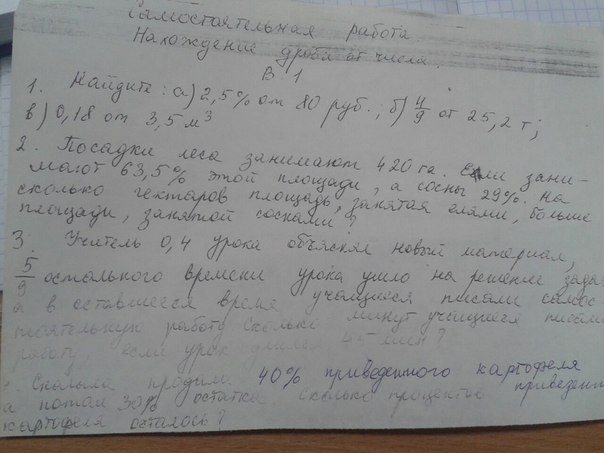 Самостоятельная работа
Нахождение дроби от числа.
В 1
1. Найдите: а) 2,5% от 80 руб.; б) 4/9 от 25,2 т;
в) 0,18 от 3,5 м³
2. Посадки леса занимают 420 га. Ели зани-
мают 63,5% этой площади, а сосны 29%. На
сколько гектаров площадь, занятая елями, больше
площади, занятой соснами?
3. Учитель 0,4 урока объяснял новый материал,
5/9 остального времени урока ушло на решение зада
а в оставшееся время учащиеся писали самос
тоятельную работу. Сколько минут учащиеся писали
работу, если урок длился 45 мин?
Сначала продали 40% приведенного картофеля
а потом 30% остатка. Сколько процентов приведенн
картофеля осталось?